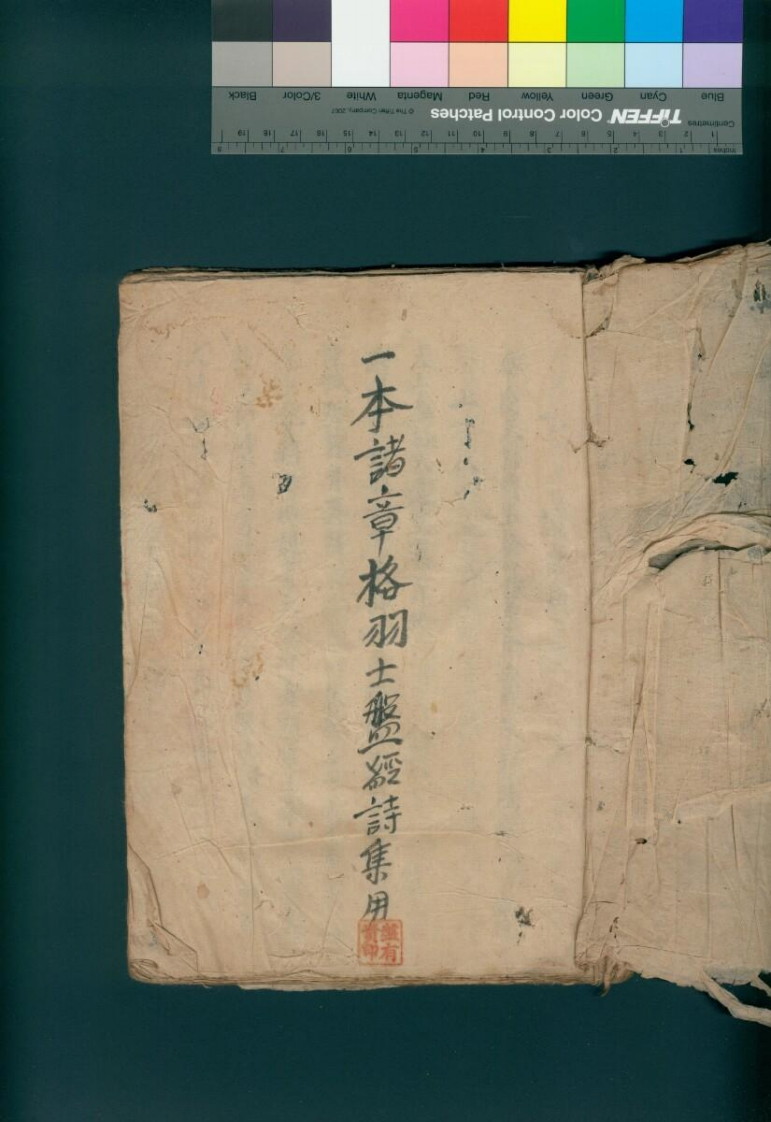 Blue Cyan Green Yellow Red Magenta White 3/Color Black
Centimetres TIFFEN Color Control Patches © The Tiffen Company, 2007
1 2 3 4 5 6 7 8 9 10 11 12 13 14 15 16 17 18 19
Inches 1 2 3 4 5 6 7 8
一本諸章格羽士盤經詩集用